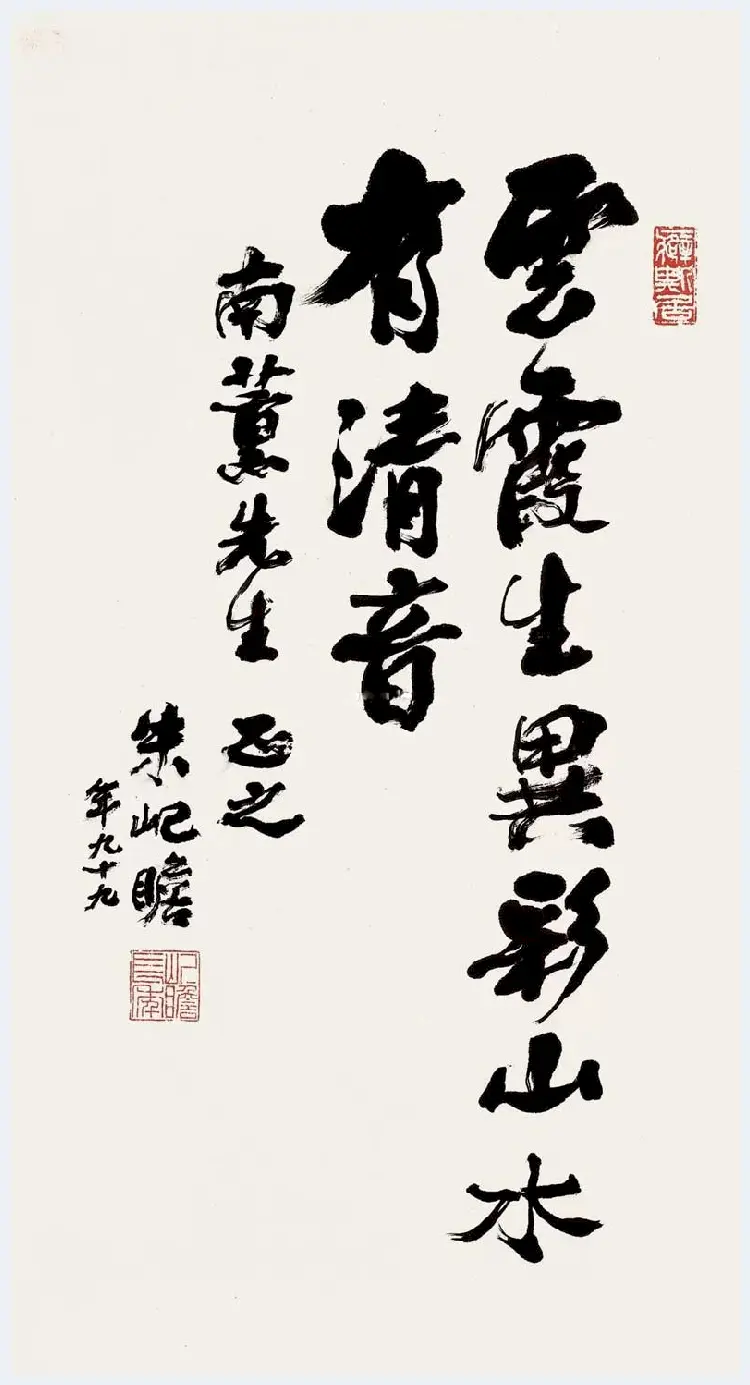 雲霞生異彩山水
有清音
南薰先生 正之
朱屺瞻
年九十九
屺瞻